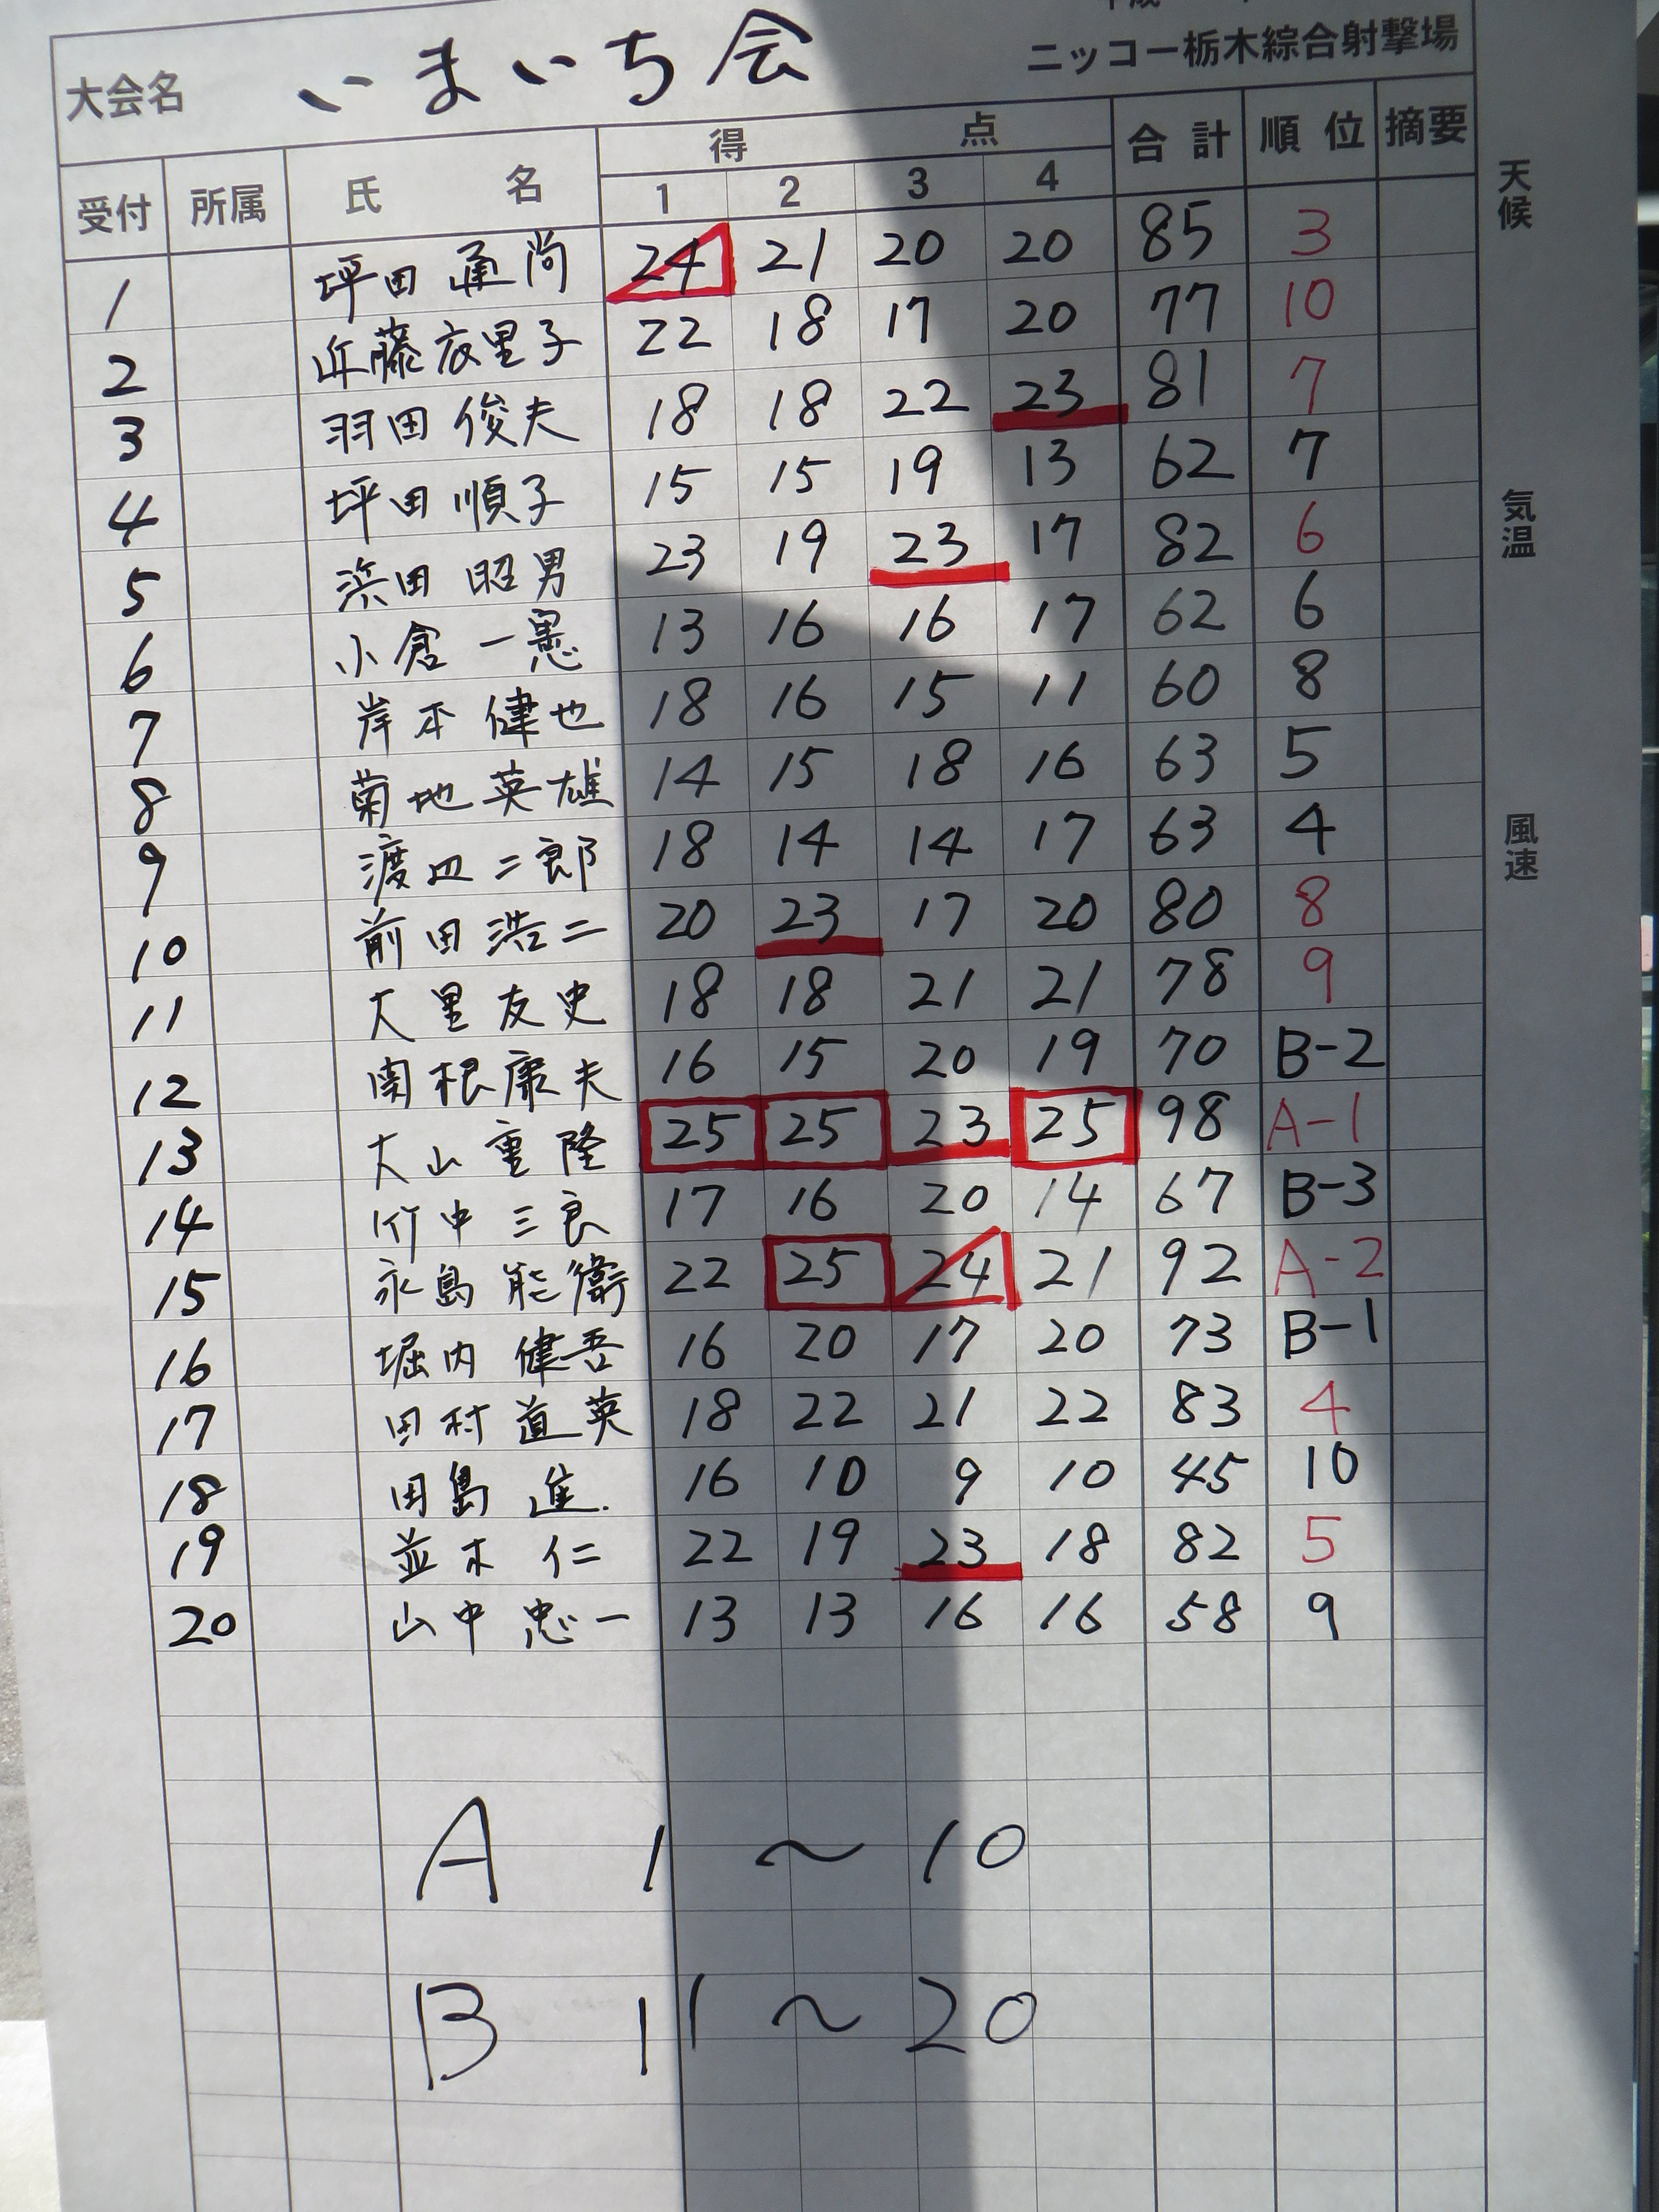 平成
大会名 いまいち会 ニッコー栃木綜合射撃場
受付 所属 氏名 得点 合計 順位 摘要
1 2 3 4
1 坪田 勇尚 24 21 20 20 85 3
2 近藤衣里子 22 18 17 20 77 10
3 羽田 俊夫 18 18 22 23 81 7
4 坪田 順子 15 15 19 13 62 7
5 浜田 昭男 23 19 23 17 82 6
6 小倉 一憲 13 16 16 17 62 6
7 岸本 健也 18 16 15 11 60 8
8 菊地英雄 14 15 18 16 63 5
9 渡辺二郎 18 14 14 17 63 4
10 前田浩二 20 23 17 20 80 8
11 大里友史 18 18 21 21 78 9
12 関根康夫 16 15 20 19 70 B-2
13 大山重隆 25 25 23 25 98 A-1
14 竹中三良 17 16 20 14 67 B-3
15 永島能衛 22 25 24 21 92 A-2
16 堀内健吾 16 20 17 20 73 B-1
17 田村直英 18 22 21 22 83 4
18 田島進. 16 10 9 10 45 10
19 並木仁 22 19 23 18 82 5
20 山中忠一 13 13 16 16 58 9
A 1 〜 10
B 11 〜 20
天候
気温
風速